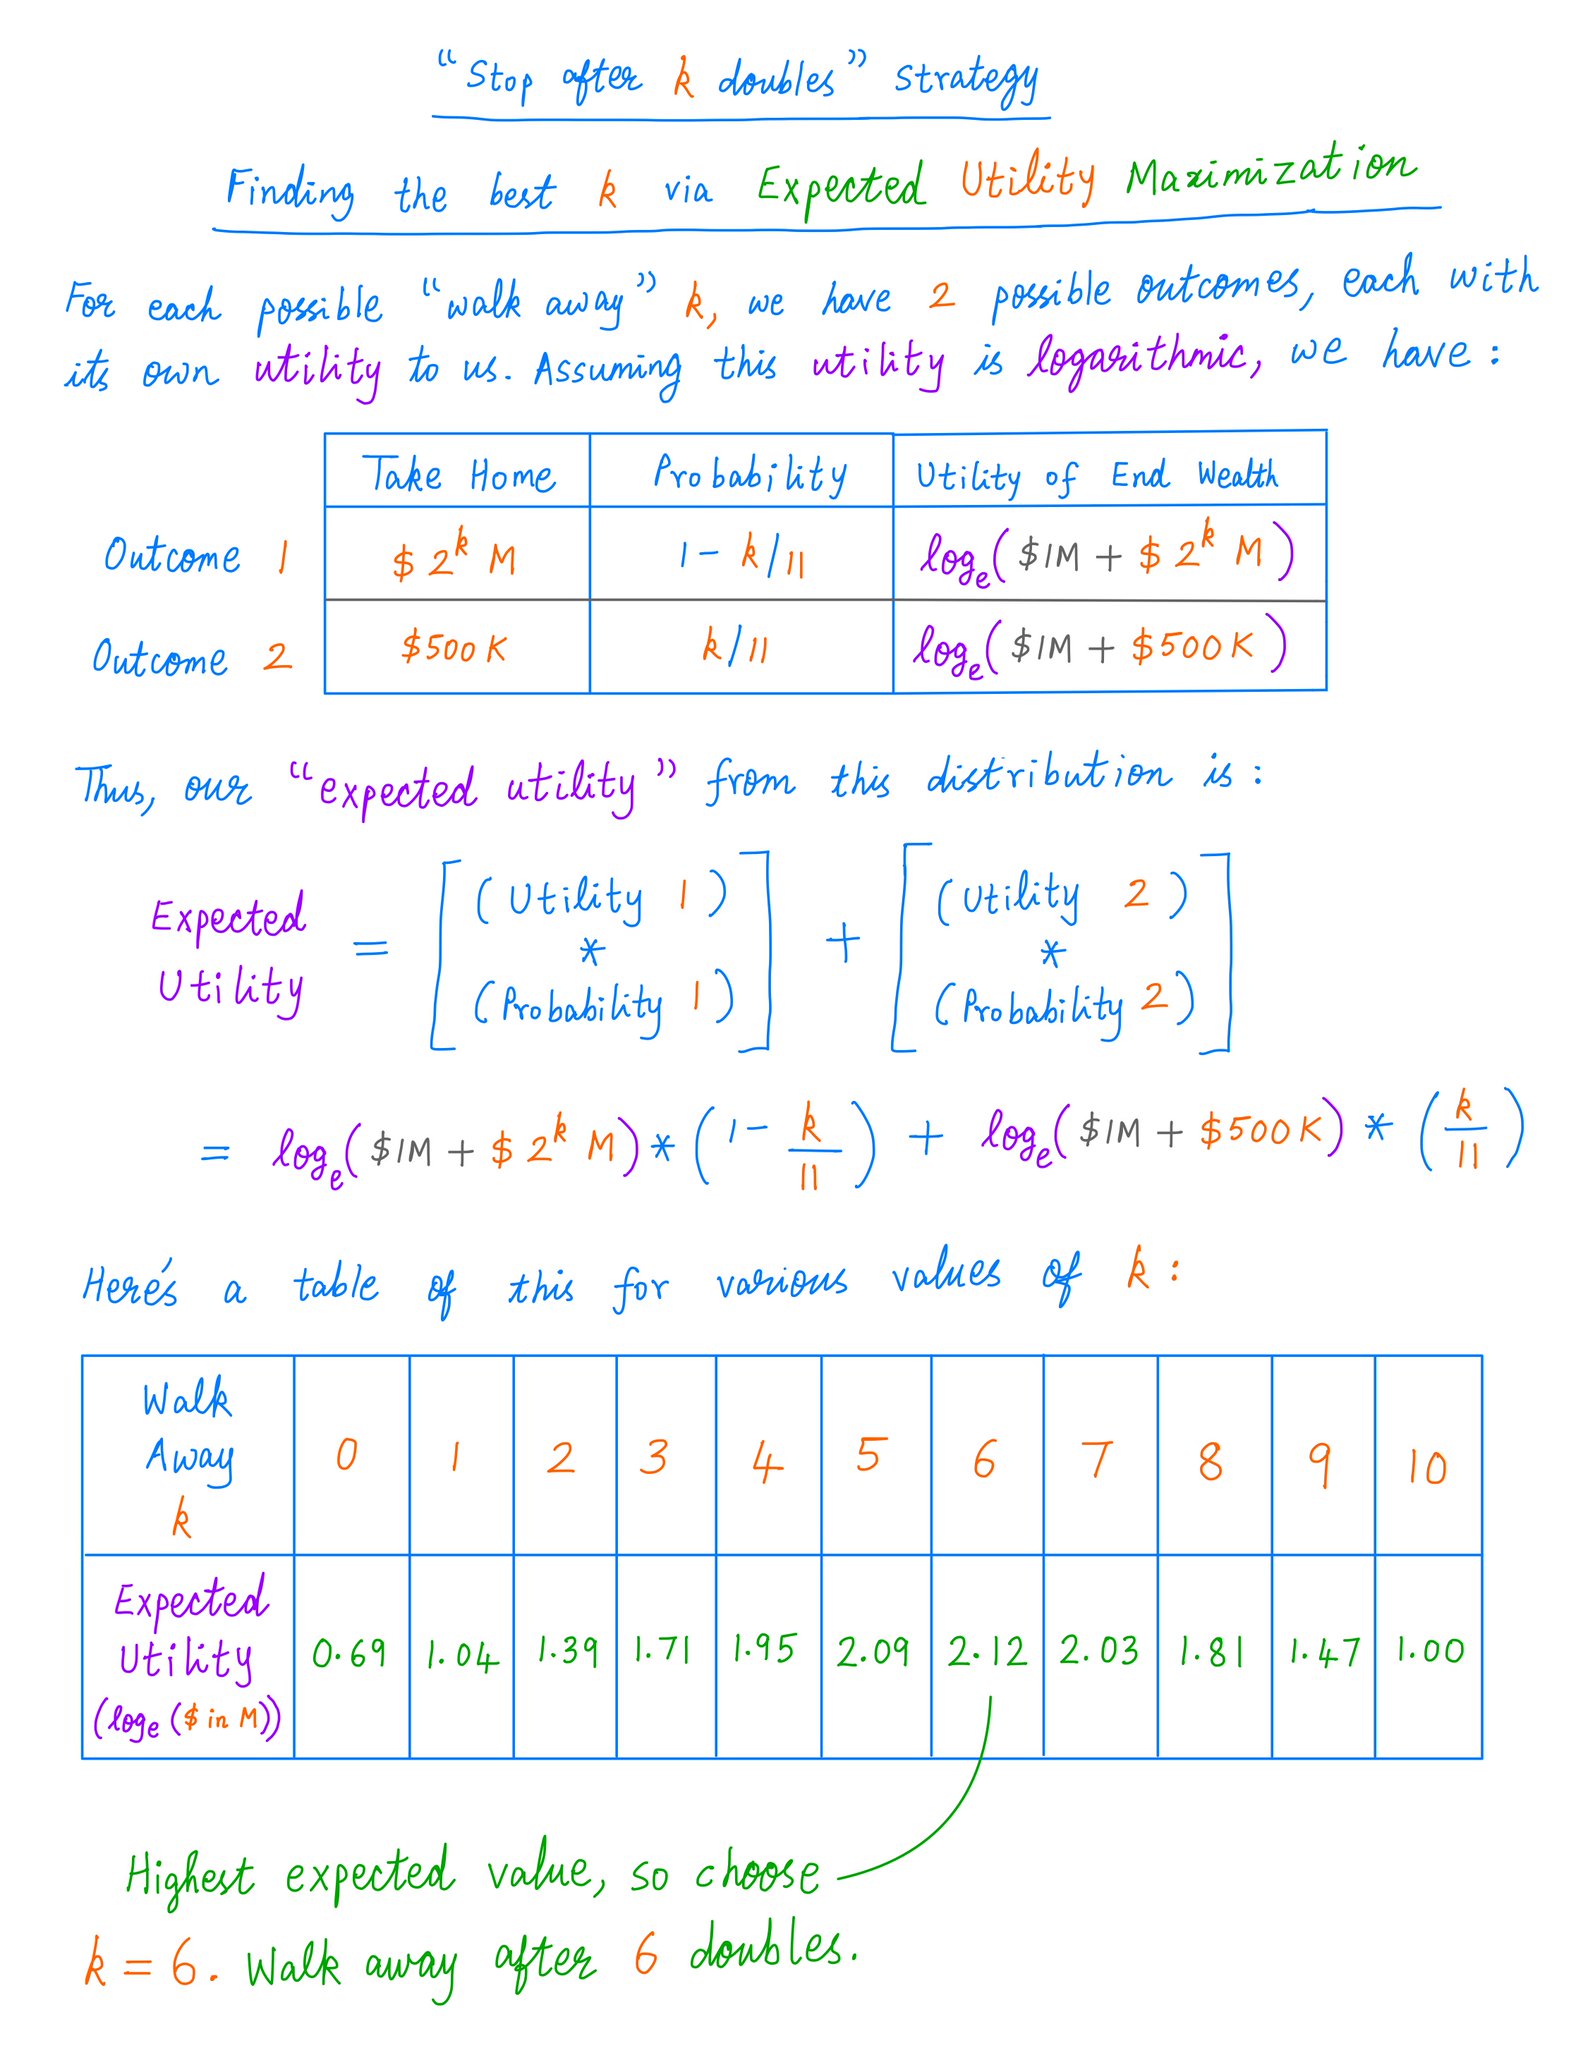 “Stop after k doubles” strategy
Finding the best k via Expected Utility Maximization
For each possible “walk away” k, we have 2 possible outcomes, each with
its own utility to us. Assuming this utility is logarithmic, we have:
Take Home Probability Utility of End Wealth
Outcome 1 $ 2^k M 1 - k/11 logₑ($1M + $ 2^k M)
Outcome 2 $500K k/11 logₑ($1M + $500K)
Thus, our “expected utility” from this distribution is:
Expected Utility = [(Utility 1) * (Probability 1)] + [(Utility 2) * (Probability 2)]
= logₑ($1M + $ 2^k M) * (1 - k/11) + logₑ($1M + $500K) * (k/11)
Here's a table of this for various values of k:
Walk Away k 0 1 2 3 4 5 6 7 8 9 10
Expected Utility (logₑ($ in M)) 0.69 1.04 1.39 1.71 1.95 2.09 2.12 2.03 1.81 1.47 1.00
Highest expected value, so choose
k = 6. Walk away after 6 doubles.